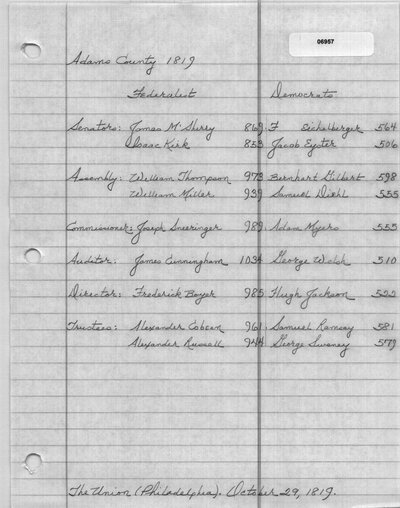 06957
Adams County 1819
Federalist Democrats
Senators: James McSherry 869 F Eichelberger 564
Isaac Kirk 853 Jacob Eyster 506
Assembly: William Thompson 973 Bernhart Gilbert 598
William Miller 939 Samuel Diehl 555
Commissioner: Joseph Sneeringer 989 Adam Myers 555
Auditor: James Cunningham 1034 George Walsh 510
Director: Frederick Boyer 985 Hugh Jackson 522
Trustees: Alexander Cobean 961 Samuel Ramsay 581
Alexander Russell 944 George Swaney 579
The Union (Philadelphia). October 29, 1819.